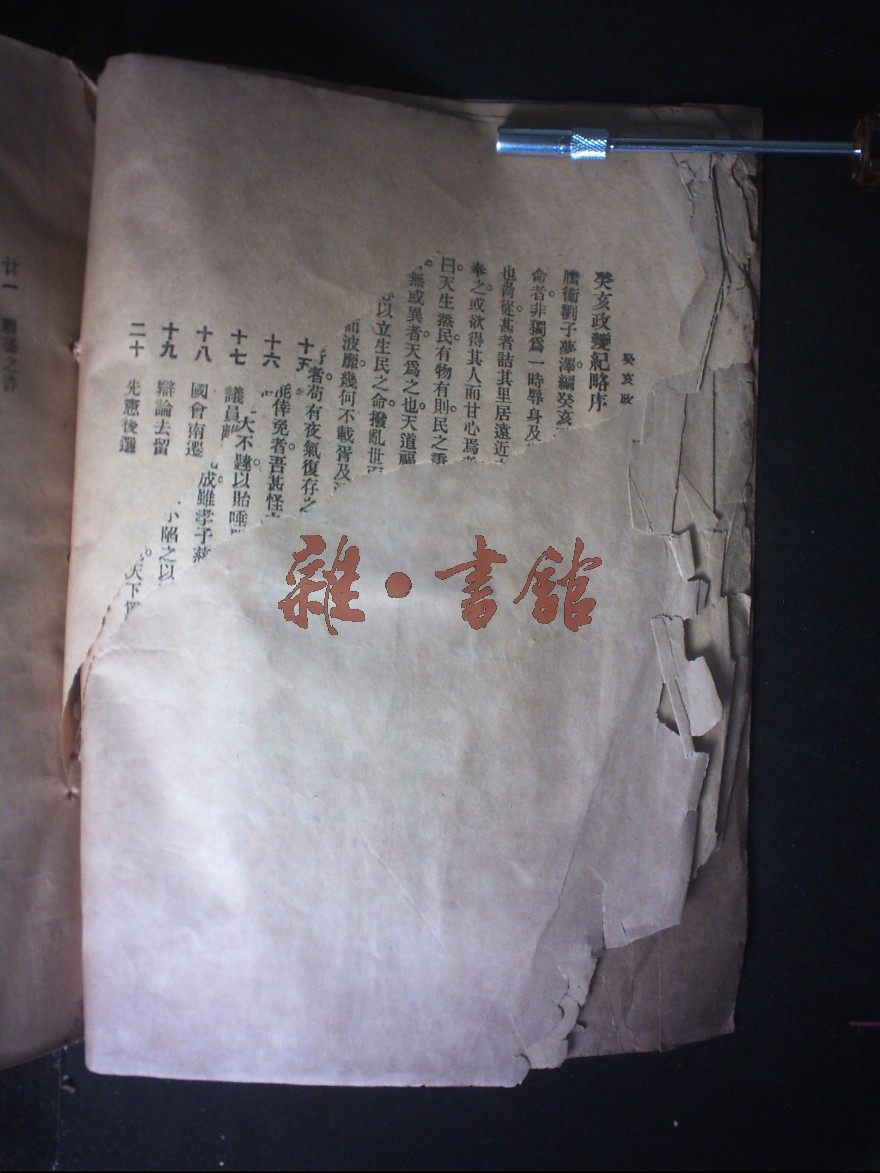 癸亥政
癸亥政變紀略序
騰衝劉子夢澤編癸亥
命者非獨爲一時辱身及
也脅從甚者詰其里居遠近
奉之或欲得其人而甘心焉
曰天生蒸民有物有則民之秉
無或異者天爲之也天道福
以立生民之命撥亂世
波靡幾何不載胥及
者苟有夜氣復存之
倖免者吾甚怪
大不韙以貽唾
成雖孝子
小陷之以
天下
十五
十六
十七 議員
十八 國會南遷
十九 辯論去留
二十 先憲後選
廿一
雜·書館